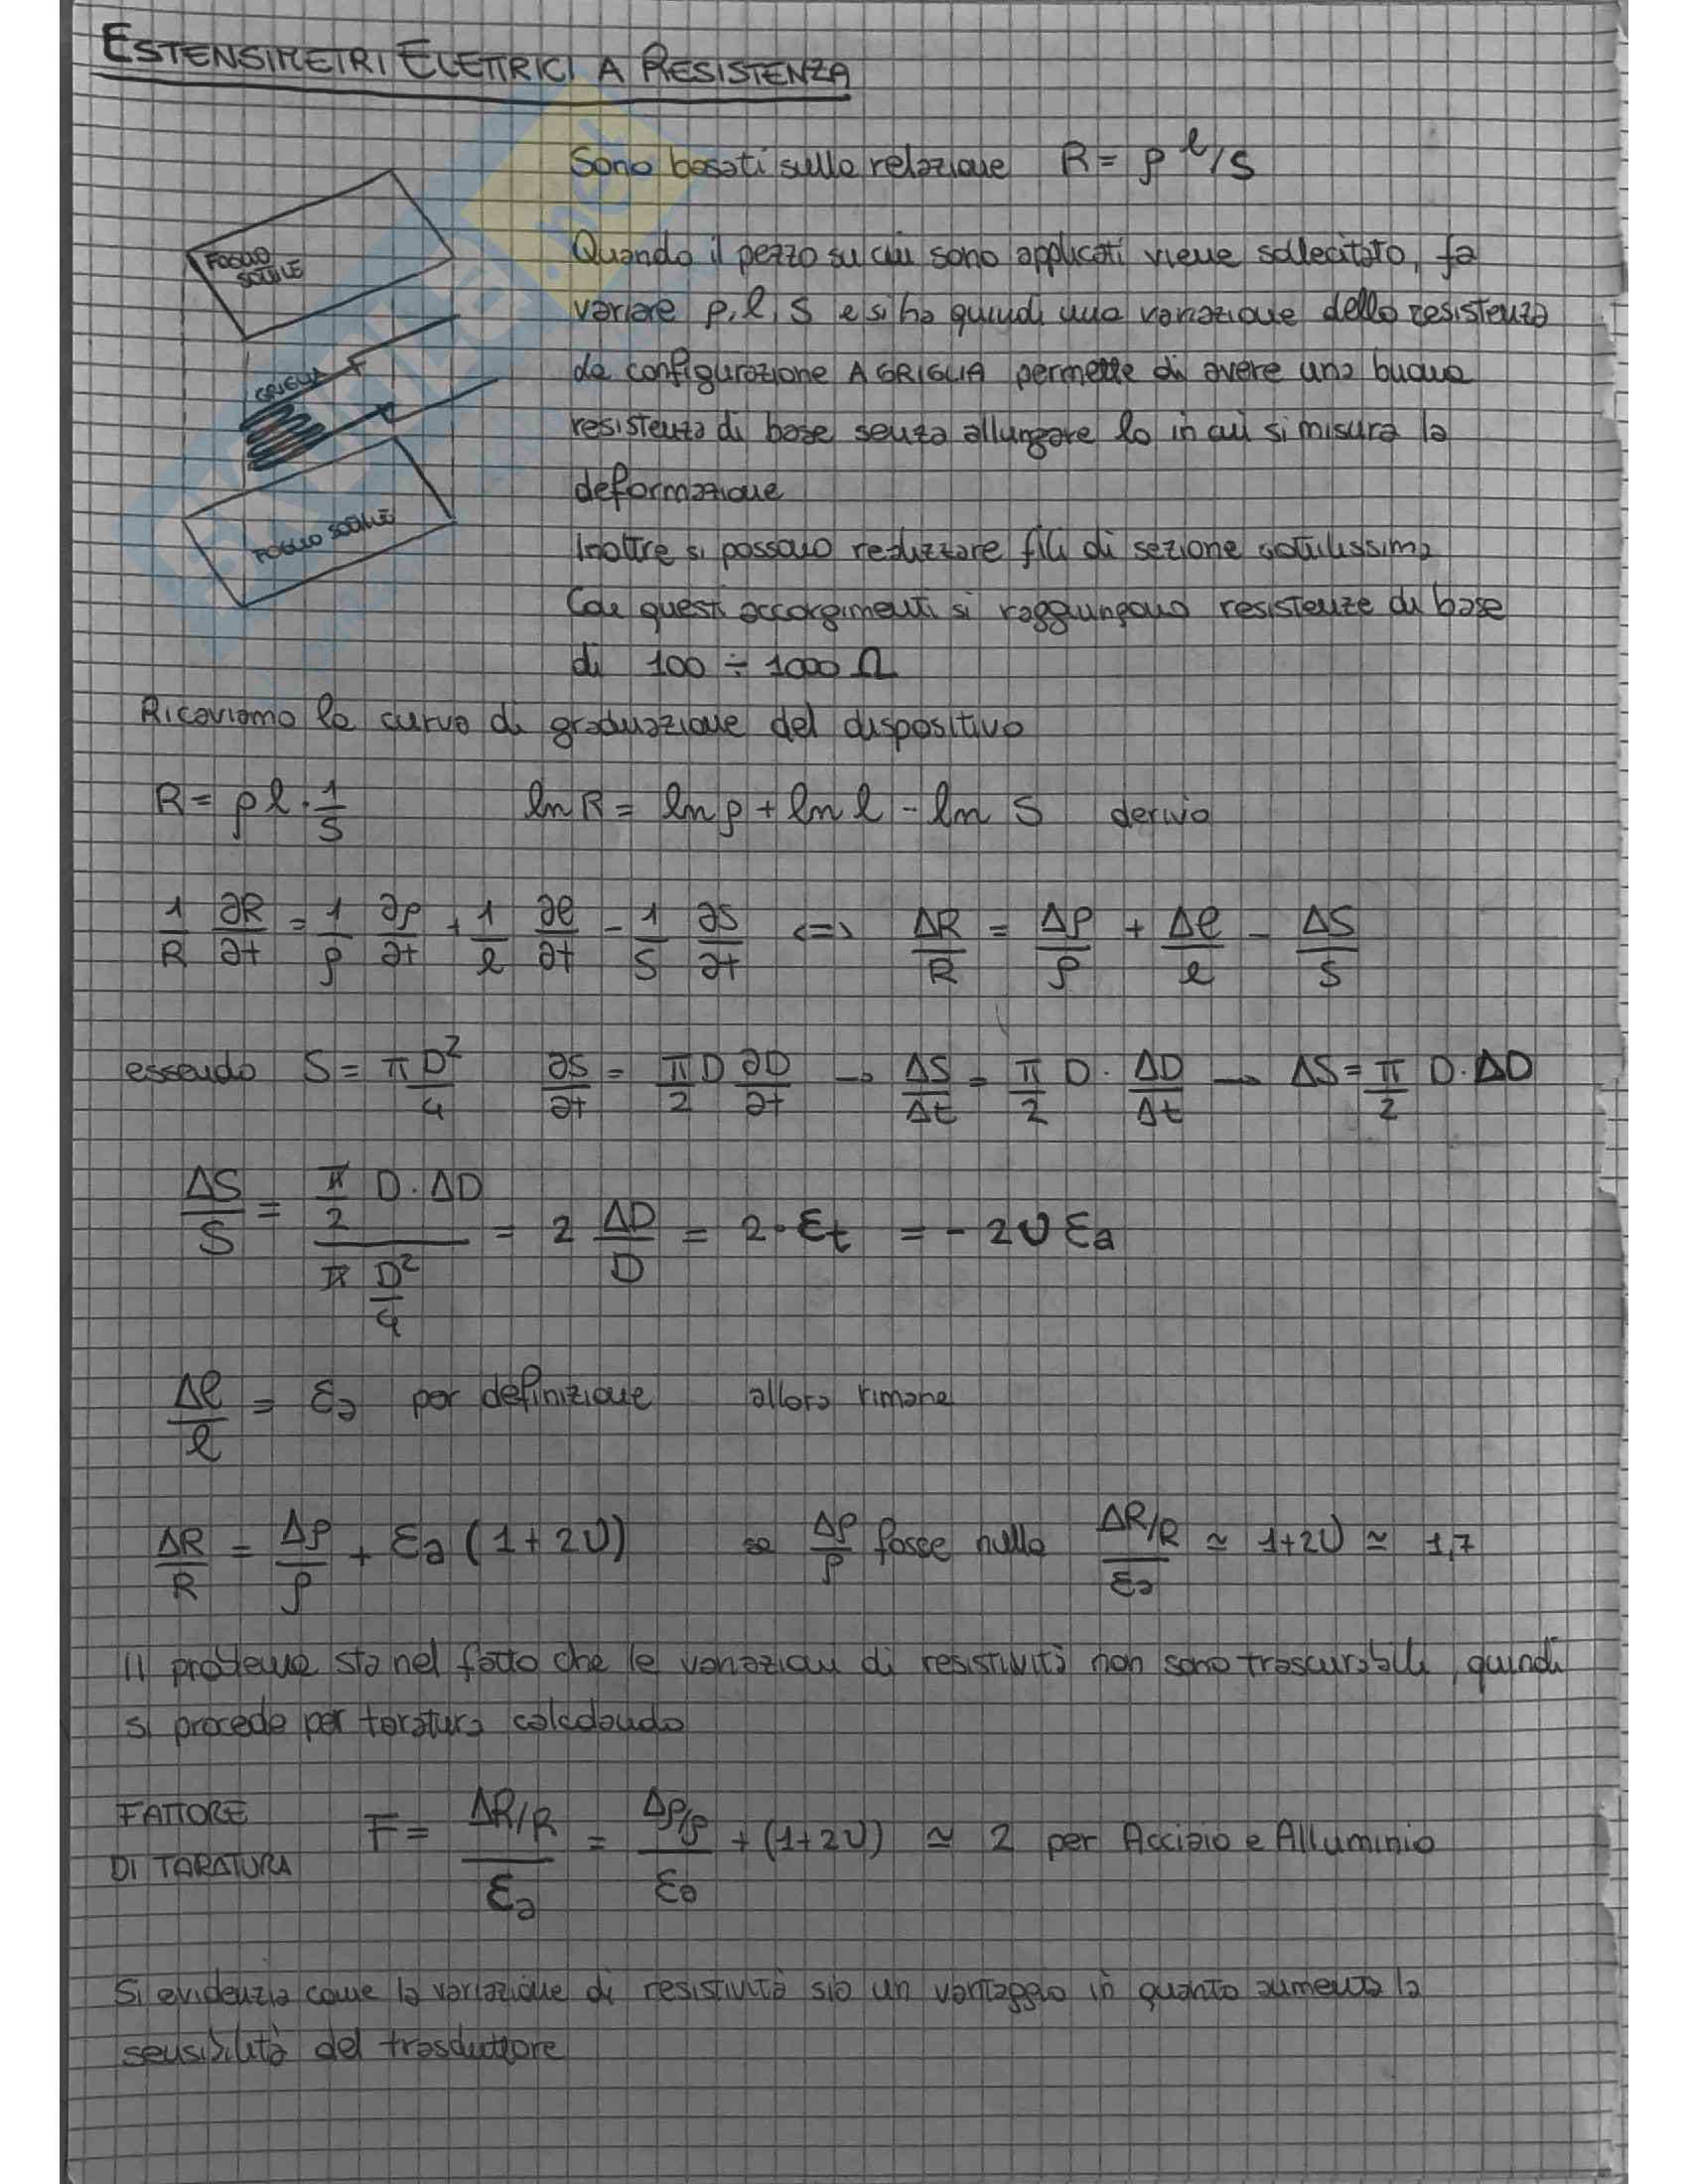 ESTENSIMETRI ELETTRICI A RESISTENZA
Sono basati sulla relazione R = ρ l/S
Quando il pezzo su cui sono applicati viene sollecitato, fa
variare ρ, l, S e si ha quindi una variazione della resistenza
La configurazione A GRIGLIA permette di avere una buona
resistenza di base senza allungare lo in cui si misura la
deformazione
Inoltre si possono realizzare fili di sezione sottilissima
Con questi accorgimenti si raggiungono resistenze di base
di 100 ÷ 1000 Ω
FOGLIO
SOTTILE
GRIGLIA
FOGLIO SOTTILE
Ricaviamo la curva di graduazione del dispositivo
R = ρ l · 1/S ln R = ln ρ + ln l - ln S derivo
1/R ∂R/∂t = 1/ρ ∂ρ/∂t + 1/l ∂l/∂t - 1/S ∂S/∂t <=> ΔR/R = Δρ/ρ + Δl/l - ΔS/S
essendo S = π D²/4 ∂S/∂t = π/2 D ∂D/∂t → ΔS/Δt = π/2 D · ΔD/Δt → ΔS = π/2 D · ΔD
ΔS/S = (π/2 D · ΔD)/(π D²/4) = 2 ΔD/D = 2 · εt = - 2υ εa
Δl/l = εa per definizione allora rimane
ΔR/R = Δρ/ρ + εa (1 + 2υ) se Δρ/ρ fosse nullo (ΔR/R)/εa ≃ 1+2υ ≃ 1,7
Il problema sta nel fatto che le variazioni di resistività non sono trascurabili, quindi
si procede per taratura calcolando
FATTORE
DI TARATURA
F = (ΔR/R)/εa = (Δρ/ρ)/εa + (1+2υ) ≃ 2 per Acciaio e Alluminio
Si evidenzia come la variazione di resistività sia un vantaggio in quanto aumenta la
sensibilità del trasduttore